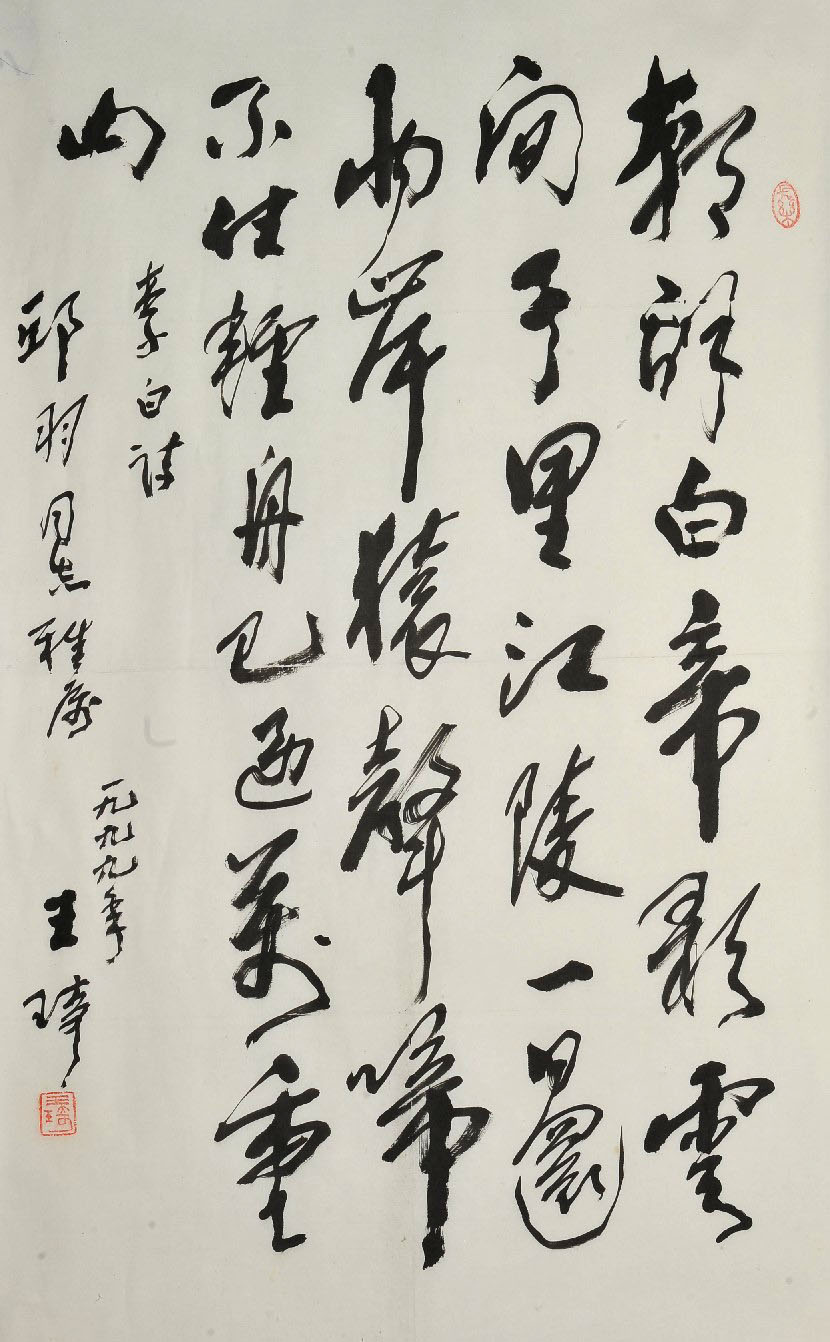 朝辭白帝彩雲
間千里江陵一日還
兩岸猿聲啼
不住輕舟已過萬重
山
李白詩
邱羽同志雅屬
一九九九年
王琦